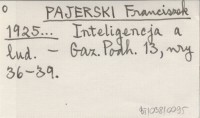 PAJERSKI Franciszek
1925... Inteligencja a
lud. — Gaz. Podh. 13, nry
36-39.